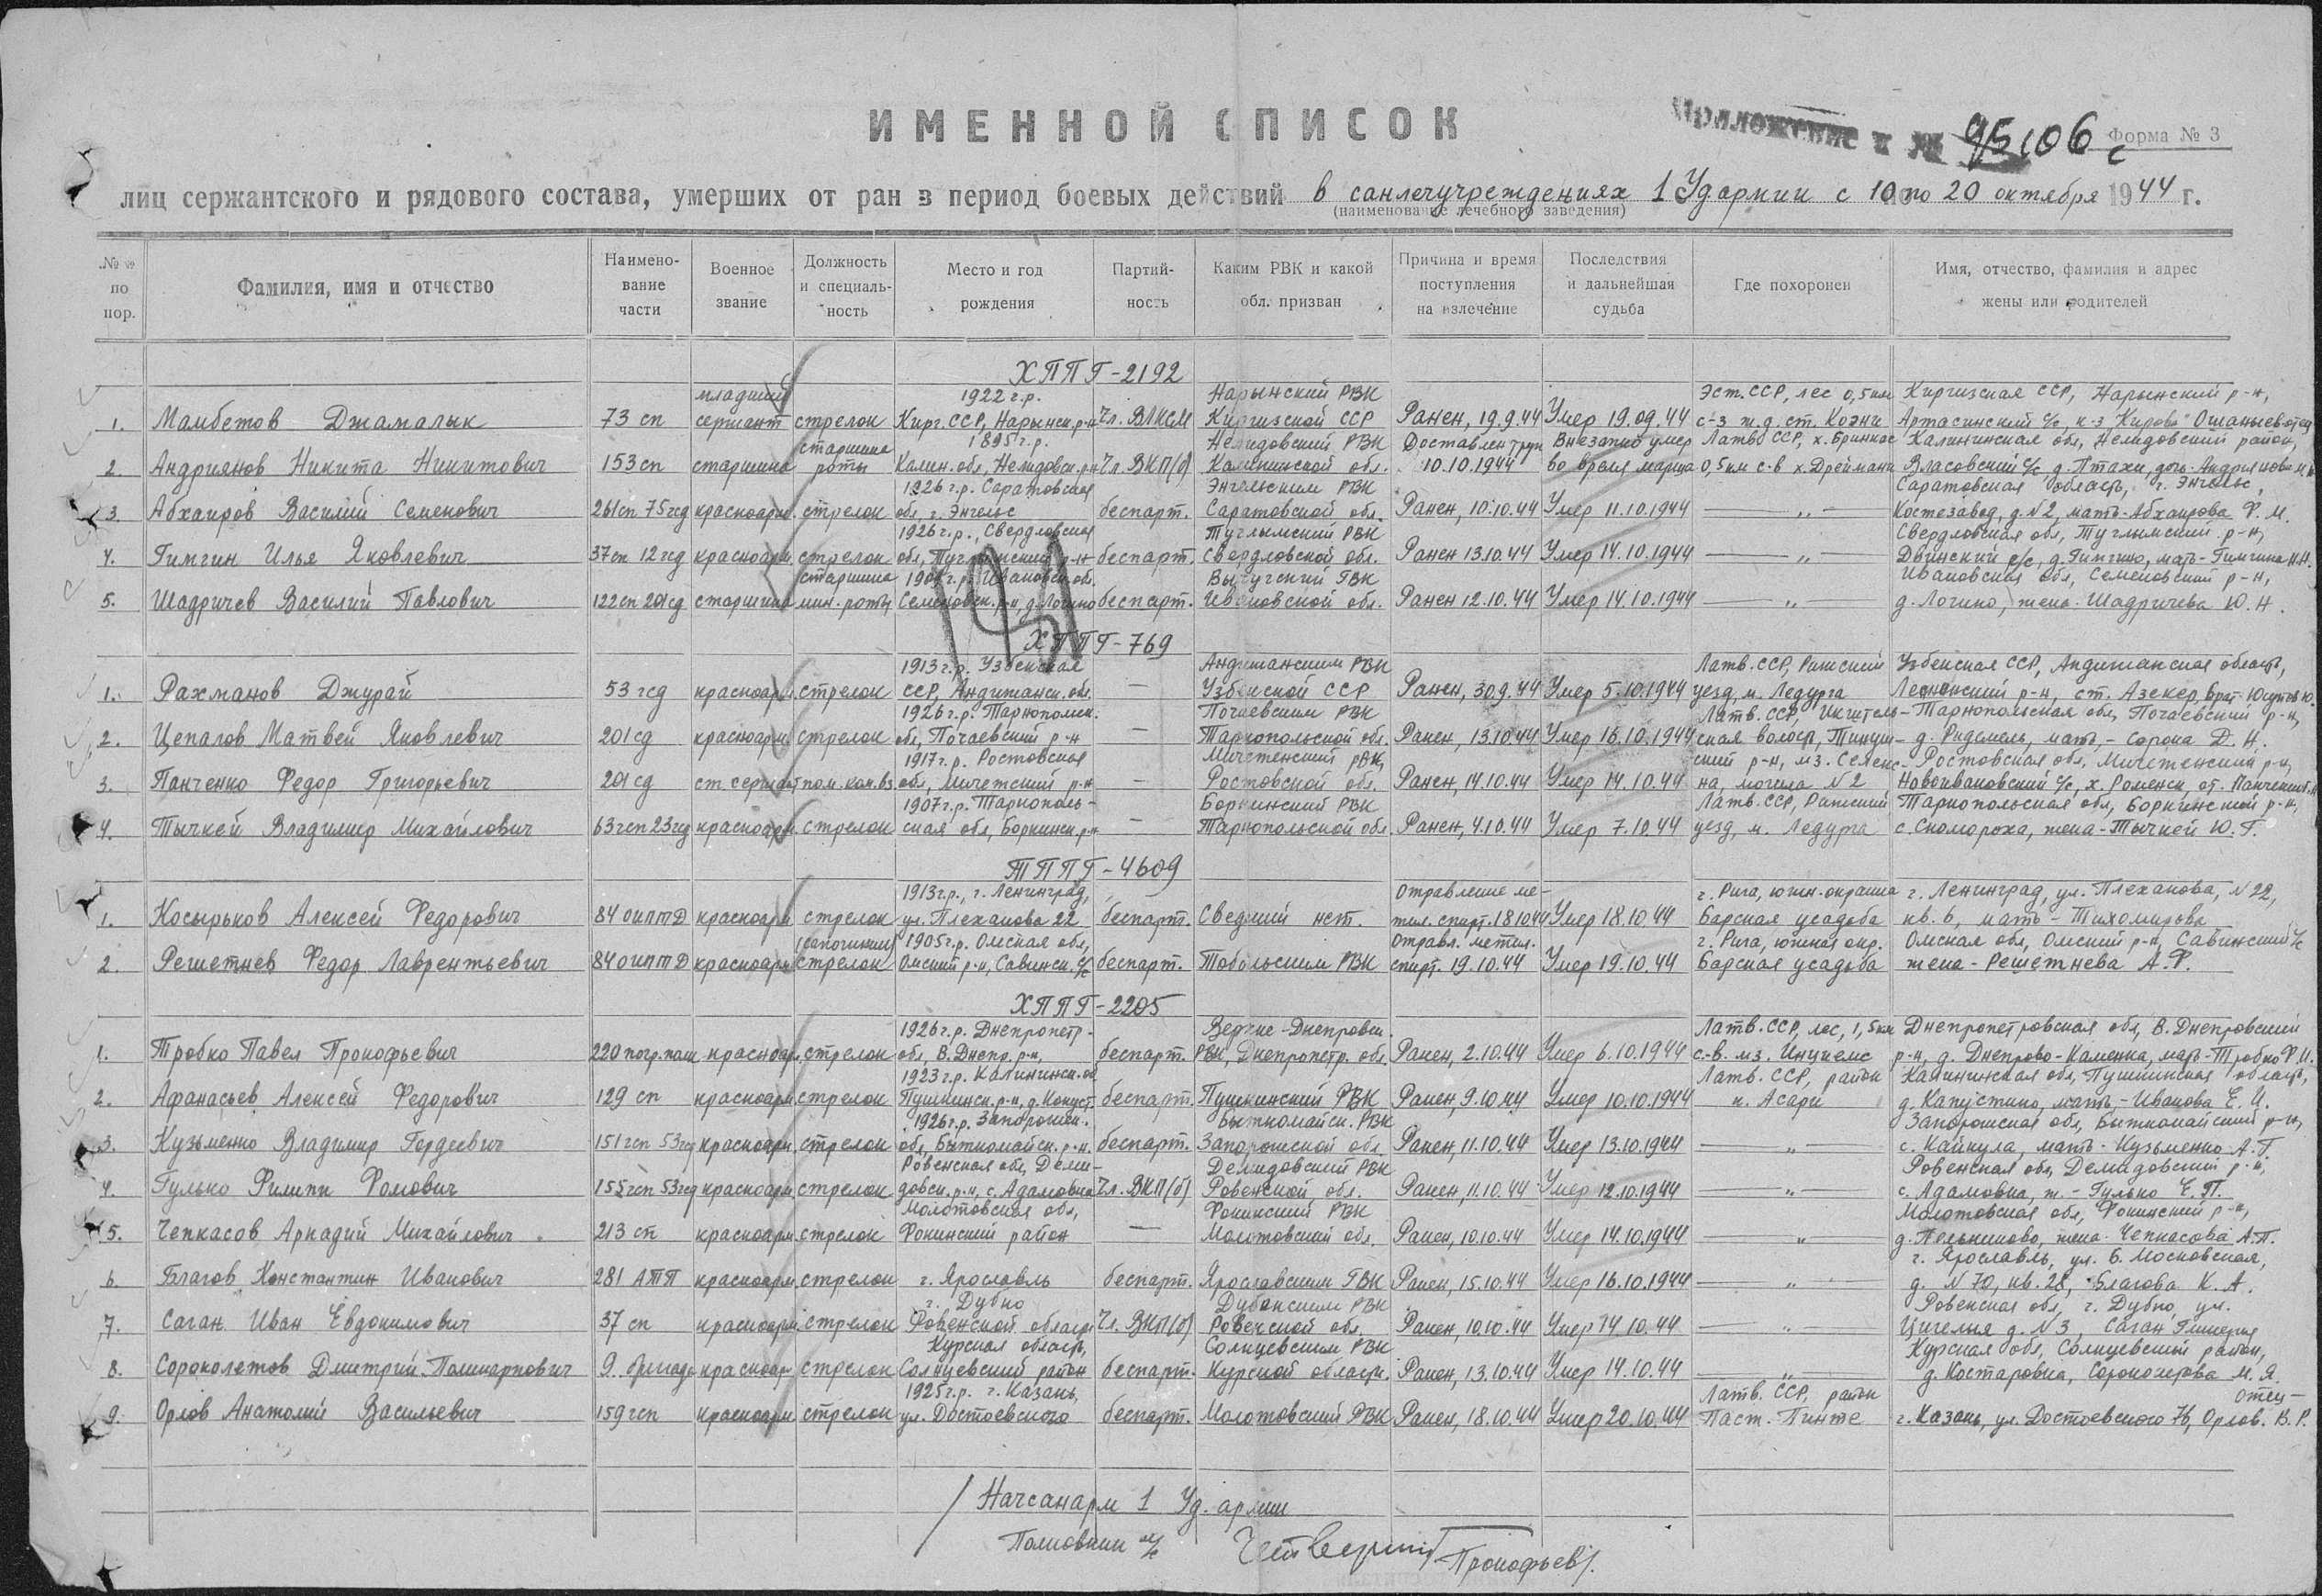 ИМЕННОЙ СПИСОК
Приложение к № 95106 с
Форма № 3
лиц сержантского и рядового состава, умерших от ран в период боевых действий в санлечучреждениях 1 Уд армии с 10 по 20 октября 1944 г.
(наименование лечебного заведения)
№№ по пор. | Фамилия, имя и отчество | Наименование части | Военное звание | Должность и специальность | Место и год рождения | Партийность | Каким РВК и какой обл. призван | Причина и время поступления на излечение | Последствия и дальнейшая судьба | Где похоронен | Имя, отчество, фамилия и адрес жены или родителей
ХППГ-2192
1. Мамбетов Джамалык | 73 сп | младший сержант | стрелок | 1922 г.р. Кирг. ССР, Нарынск. р-н | Чл. ВЛКСМ | Нарынский РВК Киргизской ССР | Ранен, 19.9.44 | Умер 19.09.44 | Эст. ССР, лес 0,5 км с-з ж.д. ст. Коэни | Киргизская ССР, Нарынский р-н, с/с, к-з "Кирова"
2. Андриянов Никита Никитович | 153 сп | старшина | старшина роты | 1895 г.р. Калин. обл, Нелидовск. р-н | Чл. ВКП(б) | Нелидовский РВК Калининской обл. | Доставлен труп 10.10.1944 | Внезапно умер во время марша | Латв ССР, х. Бринкас 0,5 км с-в х. Дрейманы | Калининская обл, Нелидовский район, Власовский с/с, д. Птахи, дочь-Андриянова
3. Абхаиров Василий Семенович | 261 сп 75 гсд | красноарм. | стрелок | 1926 г.р. Саратовская обл. г. Энгельс | беспарт. | Энгельским РВК Саратовской обл. | Ранен, 10.10.44 | Умер 11.10.1944 | — „ — | Саратовская область, г. Энгельс, Костезавод, д. №2, мать-Абхаирова Ф.М.
4. Гимгин Илья Яковлевич | 37 сп 12 гсд | красноарм. | стрелок | 1926 г.р., Свердловская обл, р-н | беспарт. | Туглымский РВК Свердловской обл. | Ранен 13.10.44 | Умер 14.10.1944 | — „ — | Свердловская обл, Туглымский р-н, Двинский с/с, д. Гимгино, мать-Гимгина Н.Н.
5. Шадричев Василий Павлович | 122 сп 201 сд | старшина | старшина мин. роты | г.р. Ивановск. обл. Семеновск. р-н, д. Логино | беспарт. | Вычугский ГВК Ивановской обл. | Ранен 12.10.44 | Умер 14.10.1944 | — „ — | Ивановская обл, Семеновский р-н, д. Логино, жена-Шадричева Ю.Н.
ХППГ-769
1. Рахманов Джурай | 53 гсд | красноарм. | стрелок | 1913 г.р. Узбекская ССР, Андижанск. обл. | — | Андижанским РВК Узбекской ССР | Ранен, 30.9.44 | Умер 5.10.1944 | Латв. ССР, Рижский уезд, м. Ледурга | Узбекская ССР, Андижанская область, р-н, ст. Азекер, брат-
2. Цепалов Матвей Яковлевич | 201 сд | красноарм. | стрелок | 1926 г.р. Тарнопольск. обл, Почаевский р-н | — | Почаевским РВК Тарнопольской обл. | Ранен, 13.10.44 | Умер 16.10.1944 | Латв. ССР, волость, р-н, мз. | Тарнопольская обл, Почаевский р-н, д. Ридемель, мать-Сорока Д.Н.
3. Панченко Федор Григорьевич | 201 сд | ст. сержант | пом. ком. вз. | 1917 г.р. Ростовская обл, Мичетский р-н | — | Мичетенский РВК, Ростовской обл. | Ранен, 14.10.44 | Умер 14.10.44 | могила №2 | Ростовская обл, Мичетенский р-н, Новоивановский с/с, х. Роменск, от.
4. Тычкей Владимир Михайлович | 63 гсп 23 гсд | красноарм | стрелок | 1907 г.р. Тарнопольская обл, Боркинск. р-н | — | Боркинский РВК Тарнопольской обл | Ранен, 4.10.44 | Умер 7.10.44 | Латв. ССР, Рижский уезд, м. Ледурга | Тарнопольская обл, Боркинский р-н, с. Скомороха, жена-Тычкей Ю.Г.
ТППГ-4609
1. Косырьков Алексей Федорович | 84 оиптд | красноарм | стрелок | 1913 г.р., г. Ленинград, ул. Плеханова 22 | беспарт. | Сведений нет. | Отравление метил. спирт. 18.10.44 | Умер 18.10.44 | г. Рига, южн. окраина Барская усадьба | г. Ленинград, ул. Плеханова, №22, кв. 6, мать-Тихомирова
2. Решетнев Федор Лаврентьевич | 84 оиптд | красноарм | (сапожник) стрелок | 1905 г.р. Омская обл, Омский р-н, Савинск. с/с | беспарт. | Тобольским РВК | Отравл. метил. спирт. 19.10.44 | Умер 19.10.44 | г. Рига, южная окр. Барская усадьба | Омская обл, Омский р-н, Савинский с/с жена-Решетнева А.Ф.
ХППГ-2205
1. Тробко Павел Прокофьевич | 220 погр. полк | красноарм. | стрелок | 1926 г.р. Днепропетр. обл, В. Днепр. р-н, | беспарт. | Верхне-Днепровск. РВК, Днепропетр. обл. | Ранен, 2.10.44 | Умер 6.10.1944 | Латв. ССР, лес, 1,5 км с-в. мз. Инциемс | Днепропетровская обл, В. Днепровский р-н, д. Днепрово-Каменка, мать-Тробко Ф.И.
2. Афанасьев Алексей Федорович | 129 сп | красноарм | стрелок | 1923 г.р. Калининск. об. Пушкинск. р-н, д. Капуст. | беспарт. | Пушкинский РВК | Ранен, 9.10.44 | Умер 10.10.1944 | Латв. ССР, район и. Асари | Калининская обл, Пушкинская область, д. Капустино, мать-Иванова Е.И.
3. Кузьменко Владимир Гордеевич | 151 гсп 53 гсд | красноарм. | стрелок | 1926 г.р. Запорожск. обл, Быткомайск. р-н. | беспарт. | Быткомайск. РВК Запорожской обл | Ранен, 11.10.44 | Умер 13.10.1944 | — „ — | Запорожская обл, Быткомайский р-н, с. Кайкула, мать-Кузьменко А.Г.
4. Гулько Филипп Фомович | 155 гсп 53 гсд | красноарм. | стрелок | Ровенская обл, Демидовск. р-н, с. Адамовка | Чл. ВКП(б) | Демидовский РВК Ровенской обл. | Ранен, 11.10.44 | Умер 12.10.1944 | — „ — | Ровенская обл, Демидовский р-н, с. Адамовка, ж.-Гулько Е.П.
5. Чепкасов Аркадий Михайлович | 213 сп | красноарм | стрелок | Молотовская обл, Фокинский район | — | Фокинский РВК Молотовской обл. | Ранен, 10.10.44 | Умер 14.10.1944 | — „ — | Молотовская обл, Фокинский р-н, д. жена-Чепкасова А.П.
6. Благов Константин Иванович | 281 АТП | красноарм. | стрелок | г. Ярославль | беспарт. | Ярославским ГВК | Ранен, 15.10.44 | Умер 16.10.1944 | — „ — | г. Ярославль, ул. Б. Московская, д. №70, кв. 28, Благова К.А.
7. Саган Иван Евдокимович | 37 сп | красноарм. | стрелок | г. Дубно Ровенской области | Чл. ВКП(б) | Дубенским РВК Ровенской обл. | Ранен, 10.10.44 | Умер 14.10.44 | — „ — | Ровенская обл, г. Дубно, ул. д. №3, Саган
8. Сороколетов Дмитрий Поликарпович | 9 бригада | красноарм | стрелок | Курская область, Солнцевский район | беспарт. | Солнцевским РВК Курской области. | Ранен, 13.10.44 | Умер 14.10.44 | — „ — | Курская обл, Солнцевский район, д. М.Я.
9. Орлов Анатолий Васильевич | 159 гсп | красноарм | стрелок | 1925 г.р. г. Казань, ул. Достоевского | беспарт. | Молотовский РВК | Ранен, 18.10.44 | Умер 20.10.44 | Латв. ССР, район Паст. Пинте | отец- г. Казань, ул. Достоевского 76, Орлов. В.Р.
Начсанарм 1 Уд. армии
Полковник м/с
Прокофьев/.